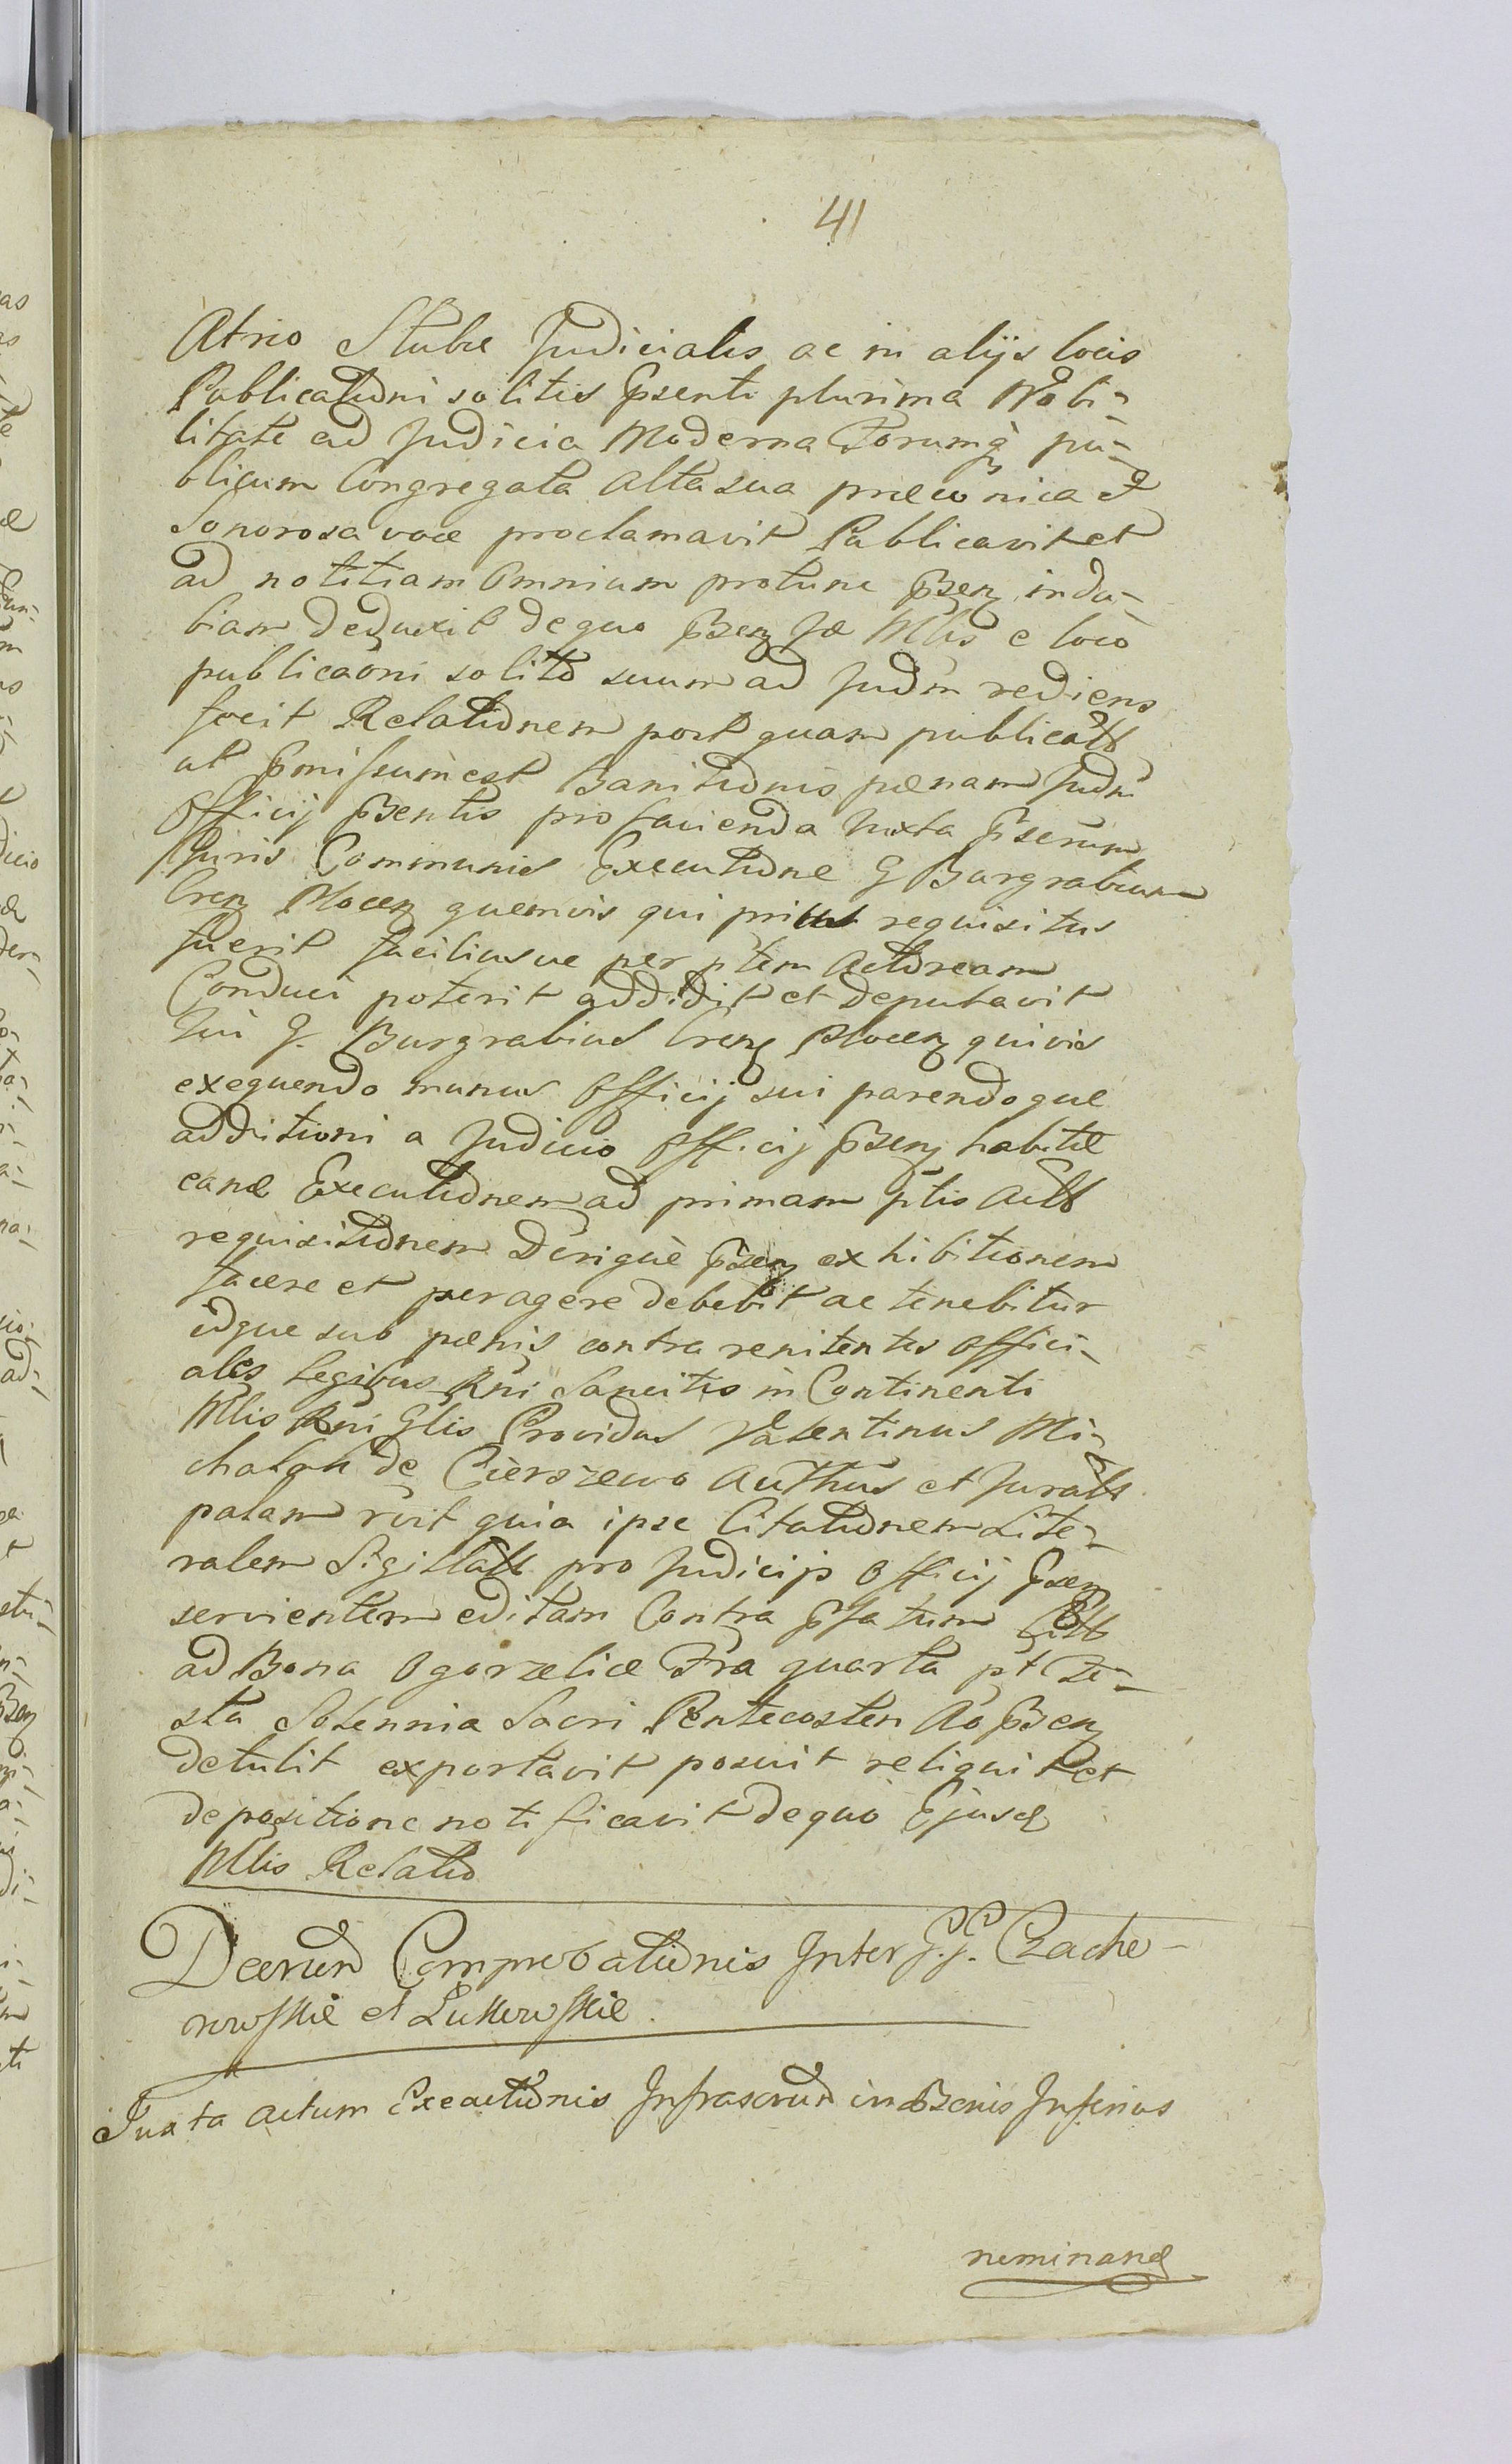 41
Atrio Stubæ Judicialis ac in alijs locis
Publicationi solitis Psenti plurima Nobi-
litate ad Judicia Moderna Forumq pu-
blicum Congregata Alta sua præconica et
Sonorosa voce proclamavit Publicavit et
ad notitiam Omnium protunc Psen indu-
biam deduxit de quo Psen Jæ Mlis e loco
publicaoni solito suum ad Judm rediens
fecit Relationem post quam publicatt
ut Pmissum est Banitionis pænam Judm
Officij Psentis pro facienda Juxta Pserum
Juris Communis Executione G Burgrabium
Cren Plocen quemvis qui prius requisitus
fuerit faciliusve per ptem Actoream
Conduci poterit addidit et deputavit
Qui G. Burgrabius Cren Plocen quivis
exequendo munus Officij sui parendoque
additioni a Judicio Officij Psen habitæ
eand Executionem ad primam ptis Actt
requisitionem Dcrique Psen exhibitionem
facere et peragere debebit ac tenebitur
idque sub pænis contra renitentes offici-
ales Legibus Rni Sancitis in Continenti
Mlis Rni Glis Providus Valentinus Mi-
chalak de Cierszewo Authus et Juratt
palam rvit quia ipse Citationem Lite-
ralem Sigillatt pro Judicijs Officij Psen
servientem editam Contra Pfatum Citt
ad Bona Ogorzelice Fra quarta pt Fe-
sta Solennia Sacri Pentecosten Ao Psen
detulit exportavit posuit reliquit et
depositione notificavit de quo Ejusd
Mlis Relatio
Decrum Comprobationis Inter G.G. Czacho-
rowskie et Lukowskie.
Juxta actum Exectionis Infrascrum in Bonis Inferius
nominand